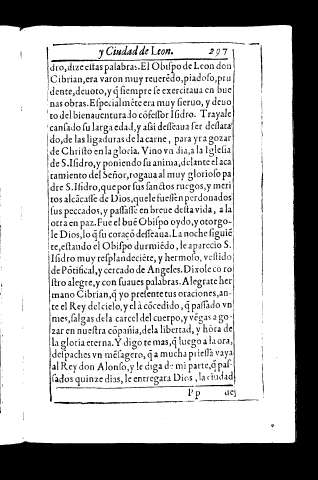 y Ciudad de Leon. 297
dro, dize estas palabras. El Obispo de Leon don
Cibrian, era varon muy reuerẽdo, piadoso, pru
dente, deuoto, y q̃ siempre se exercitaua en bue
nas obras. Especialmẽte era muy sieruo, y deuo
to del bienauentura do cõfessor Isidro. Trayale
cansado su larga edad, y assi desseaua ser desata
do, de las ligaduras de la carne, para yr a gozar
de Christo en la gloria. Vino vn dia, a la Iglesia
de S. Isidro, y poniendo su anima, delante el aca
tamiento del Señor, rogaua al muy glorioso pa
dre S. Isidro, que por sus sanctos ruegos, y meri
tos alcãcasse de Dios, que le fuessen perdonados
sus peccados, y passasse en breue desta vida, a la
otra en paz. Fue el buẽ Obispo oydo, y otorgo-
le Dios, lo q̃ su coraçõ desseaua. La noche siguiẽ
te, estando el Obispo durmiẽdo, le aparecio S.
Isidro muy resplandeciẽte, y hermoso, vestido
de Põtifical, y cercado de Angeles. Dixole co ro
stro alegre, y con suaues palabras. Alegrate her
mano Cibrian, q̃ yo presente tus oraciones, an-
te el Rey del cielo, y el à cõcedido, q̃ passado vn
mes, salgas de la carcel del cuerpo, y vẽgas a go-
zar en nuestra cõpañia, de la libertad, y hõra de
la gloria eterna. Y digo te mas, q̃ luego a la ora,
despaches vn mẽsagero, q̃ a mucha priessa vaya
al Rey don Alonso, y le diga de mi parte, q̃ pas-
sados quinze dias, le entregara Dios, la ciudad
Pp